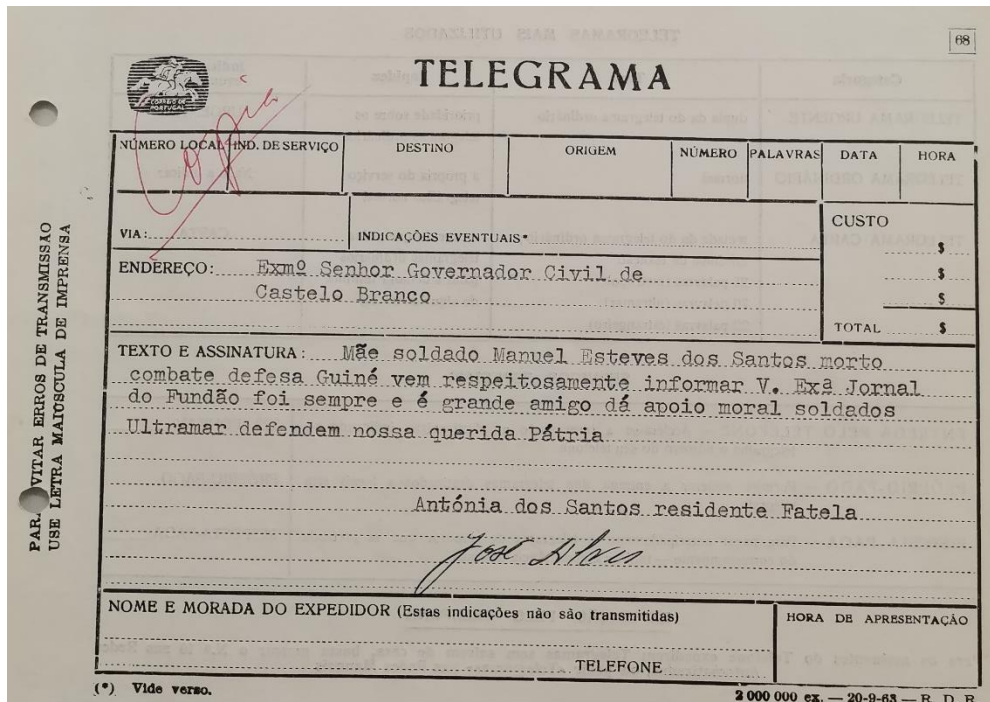 68
TELEGRAMA
CORREIO DE
PORTUGAL
Copia
NÚMERO LOCAL IND. DE SERVIÇO DESTINO ORIGEM NÚMERO PALAVRAS DATA HORA
VIA: INDICAÇÕES EVENTUAIS*
CUSTO
$
ENDEREÇO: Exmº Senhor Governador Civil de
$
Castelo Branco
$
TOTAL $
TEXTO E ASSINATURA: Mãe soldado Manuel Esteves dos Santos morto
combate defesa Guiné vem respeitosamente informar V. Exª Jornal
do Fundão foi sempre e é grande amigo dá apoio moral soldados
Ultramar defendem nossa querida Pátria
Antónia dos Santos residente Fatela
José
NOME E MORADA DO EXPEDIDOR (Estas indicações não são transmitidas)
HORA DE APRESENTAÇÃO
TELEFONE
(*) Vide verso.
2 000 000 ex. — 20-9-63 — R. D. R.
PAR. VITAR ERROS DE TRANSMISSÃO
USE LETRA MAIÚSCULA DE IMPRENSA